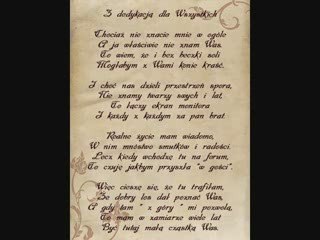 Z dedykacją dla Wszystkich
Chociaż nie znacie mnie w ogóle
A ja właściwie nie znam Was,
To wiem, że i bez beczki soli
Mogłabym z Wami konie kraść.
I choć nas dzieli przestrzeń spora,
Nie znamy twarzy swych i lat,
To łączy ekran monitora
I każdy z każdym za pan brat
Realne życie mam wiadome,
W nim mnóstwo smutków i radości.
Lecz kiedy wchodzę tu na forum,
To czuję jakbym przyszła "w gości".
Więc cieszę się, że tu trafiłam,
Że dobry los dał poznać Was,
A gdy tam " z góry " mi pozwolą,
To mam w zamiarze wiele lat
Być tutaj małą cząstką Was.